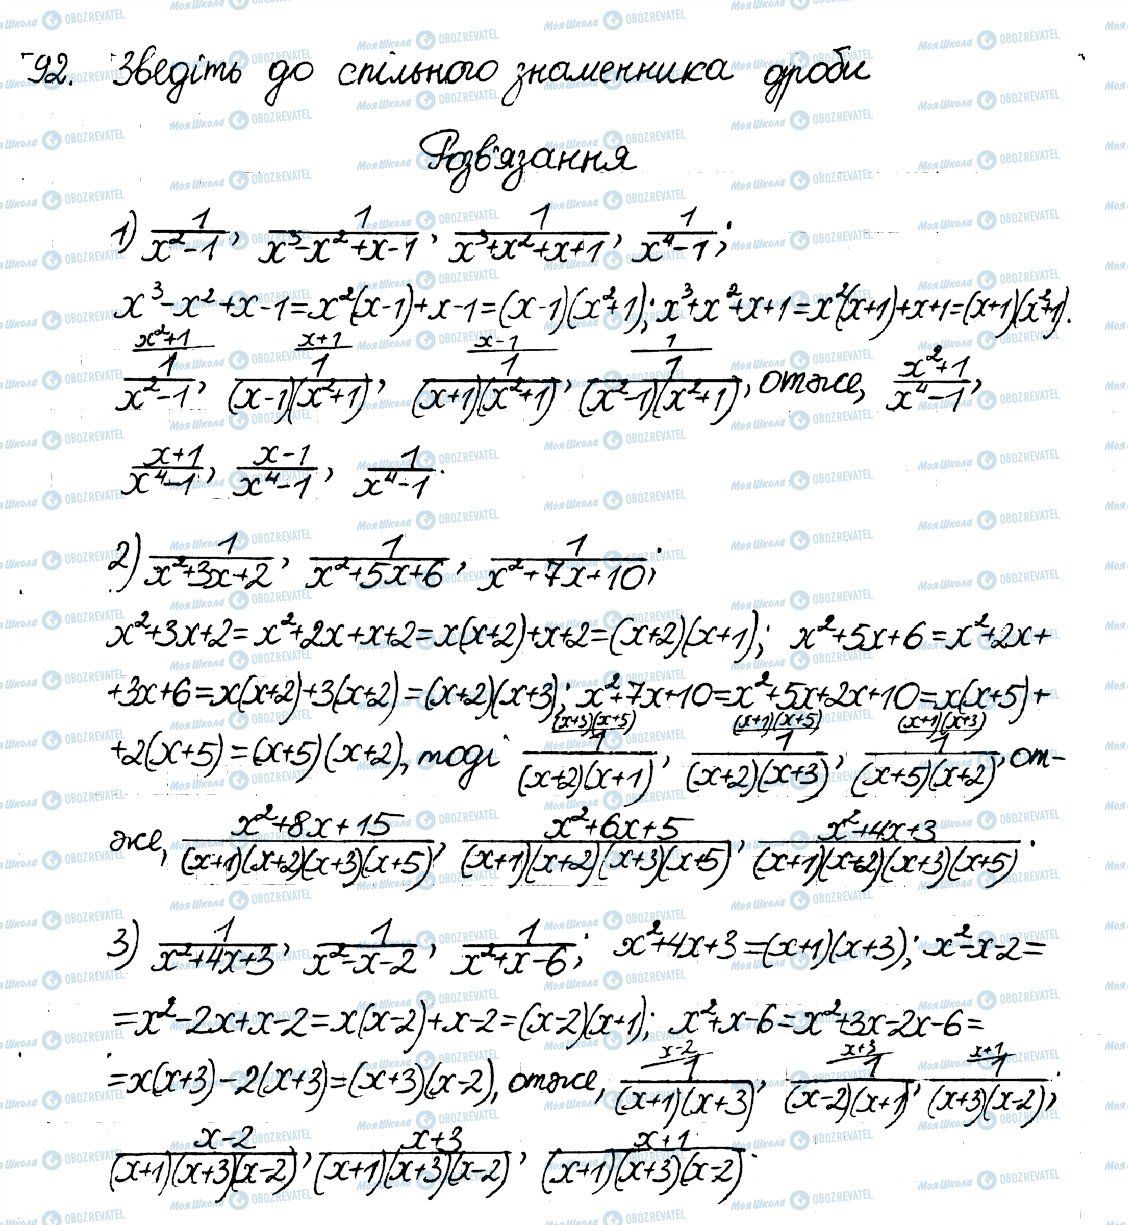 792. Зведіть до спільного знаменника дроби
Розв'язання
1) 1/(x²-1), 1/(x³-x²+x-1), 1/(x³+x²+x+1), 1/(x⁴-1);
x³-x²+x-1=x²(x-1)+x-1=(x-1)(x²+1); x³+x²+x+1=x²(x+1)+x+1=(x+1)(x²+1).
x²+1 x+1 x-1 1
1/(x²-1), 1/((x-1)(x²+1)), 1/((x+1)(x²+1)), 1/((x²-1)(x²+1)), отже, (x²+1)/(x⁴-1),
(x+1)/(x⁴-1), (x-1)/(x⁴-1), 1/(x⁴-1).
2) 1/(x²+3x+2), 1/(x²+5x+6), 1/(x²+7x+10);
x²+3x+2=x²+2x+x+2=x(x+2)+x+2=(x+2)(x+1); x²+5x+6=x²+2x+
+3x+6=x(x+2)+3(x+2)=(x+2)(x+3); x²+7x+10=x²+5x+2x+10=x(x+5)+
(x+3)(x+5) (x+1)(x+5) (x+1)(x+3)
+2(x+5)=(x+5)(x+2), тоді 1/((x+2)(x+1)), 1/((x+2)(x+3)), 1/((x+5)(x+2)), от-
же, (x²+8x+15)/((x+1)(x+2)(x+3)(x+5)), (x²+6x+5)/((x+1)(x+2)(x+3)(x+5)), (x²+4x+3)/((x+1)(x+2)(x+3)(x+5)).
3) 1/(x²+4x+3), 1/(x²-x-2), 1/(x²+x-6); x²+4x+3=(x+1)(x+3); x²-x-2=
=x²-2x+x-2=x(x-2)+x-2=(x-2)(x+1); x²+x-6=x²+3x-2x-6=
x-2 x+3 x+1
=x(x+3)-2(x+3)=(x+3)(x-2), отже, 1/((x+1)(x+3)), 1/((x-2)(x+1)), 1/((x+3)(x-2));
(x-2)/((x+1)(x+3)(x-2)), (x+3)/((x+1)(x+3)(x-2)), (x+1)/((x+1)(x+3)(x-2)).
Моя Школа OBOZREVATEL